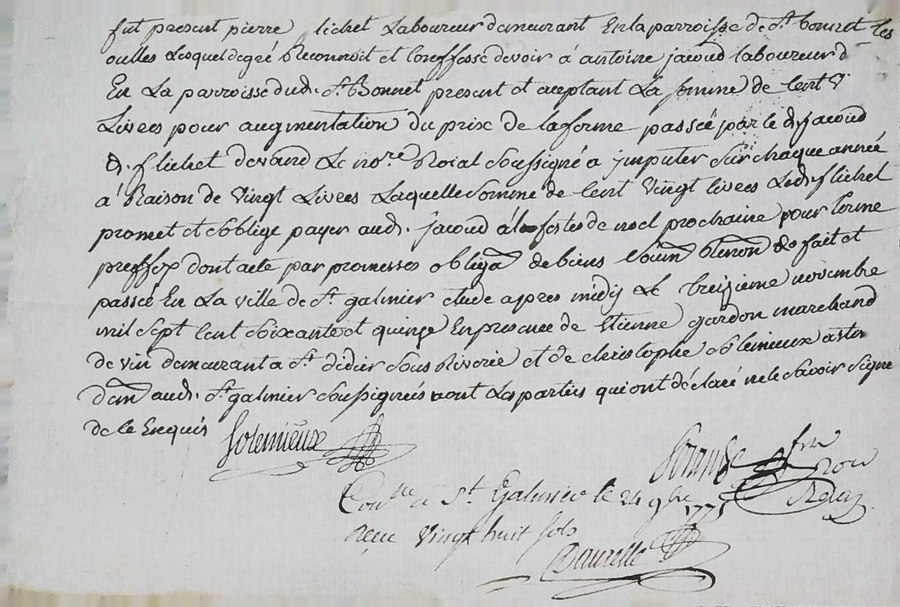 fut present pierre flichet Laboureur demeurant En la parroisse de St. bonnet les
oulles Lesquel degré Reconnoit et Confesse devoir à antoine jacoud laboureur d
En La parroisse dud. St. Bonnet present et aceptant La somme de Cent V
Livres pour augmentation du prix de la ferme passée par le d. jacoud
d. flichet devand Le nore. Roial Soussigné a jmputer Sur chaque année
à Raison de Vingt Livres Laquelle Somme de Cent Vingt livres Led. flichet
promet et oblige payer aud. jacoud à la festes de noel prochaine pour terme
preffix dont acte par promesses obligaon de biens Soumon Renon de fait et
passé En La ville de St. galmier etude apres midy Le treizieme novembre
mil Sept Cent Soixante et quinze En presence de Etienne gardon marchand
de vin demeurant a St. didier Sous Riverie et de christophe Solemieux
dem aud. St. galmier Soussignés non Les parties qui ont déclaré ne le Savoir Signe
de ce Enquis
Solemieux
Conlé à St. Galmier le 24 9bre 1775
Reçu Vingt huit Sols
Daurelle